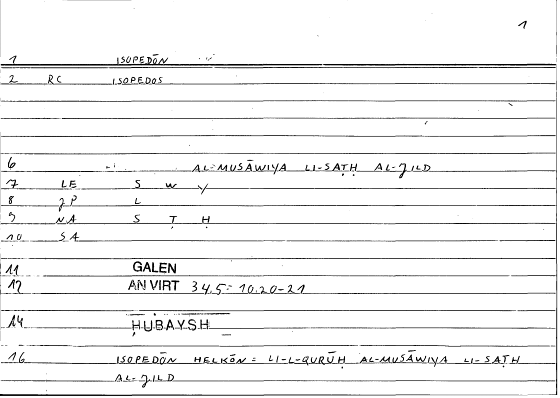 1
1 ISOPEDŌN
2 RC ISOPEDOS
6 AL-MUSĀWIYA LI-SAṬḤ AL-ǦILD
7 LE S W Y
8 JP L
9 NA S Ṭ Ḥ
10 SA
11 GALEN
12 AN VIRT 34,5 = 10.20-21
14 ḤUBAYSH
16 ISOPEDŌN HELKŌN = LI-L-QURŪḤ AL-MUSĀWIYA LI-SAṬḤ
AL-ǦILD